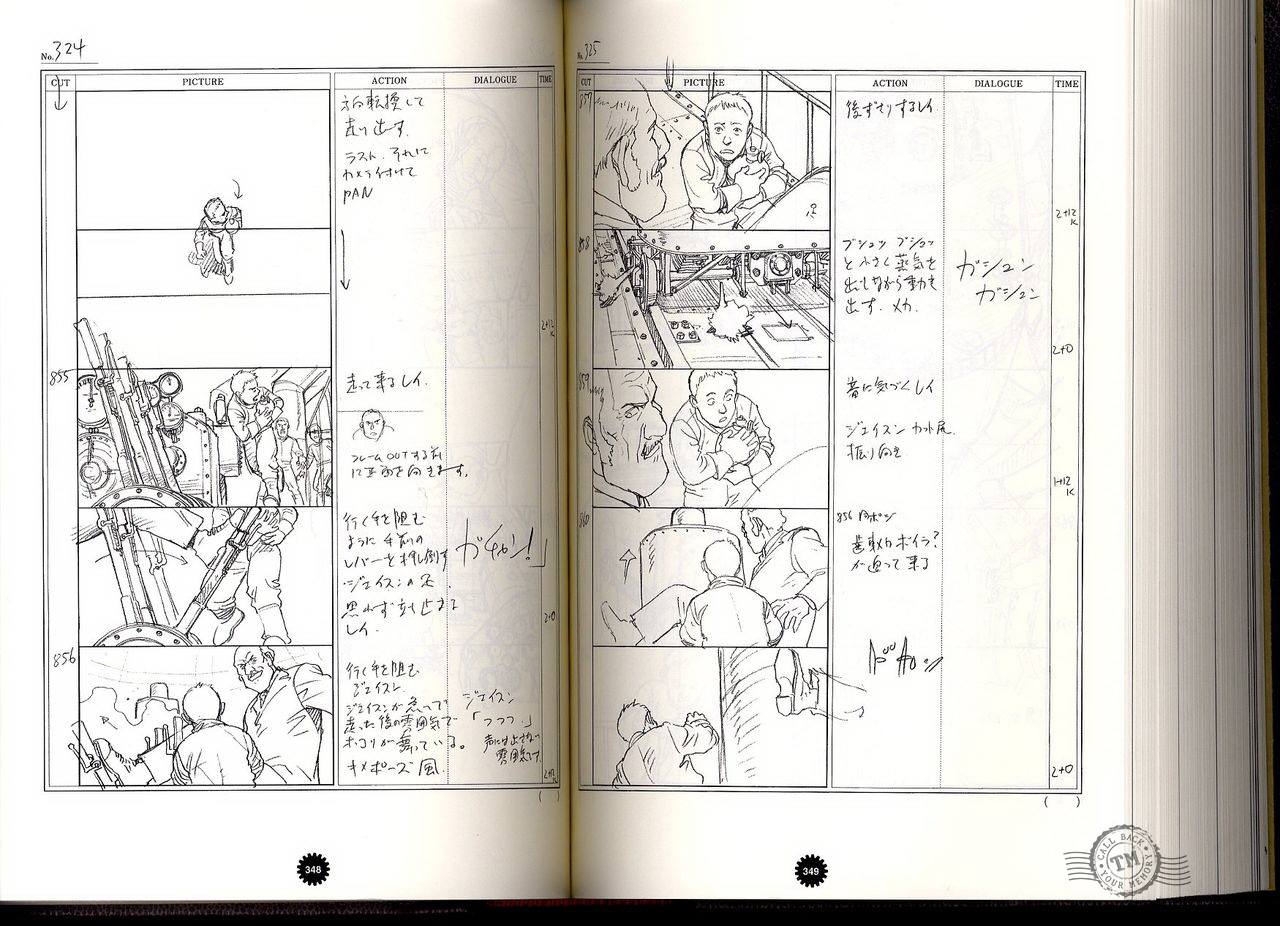 No. 324
CUT PICTURE ACTION DIALOGUE TIME
方向転換して
走り出す.
ラスト. それに
カメラ付けて
PAN
2+12
K
855
走って来るレイ.
フレームOUTする前
に正面を向きます.
行く手を阻む
ように手前の
レバーを押し倒す
ジェイスンの足.
思わず立ち止まる
レイ.
ガチャン!」
2+0
856
行く手を阻む
ジェイスン.
ジェイスンが急って
走った後の雰囲気で
ホコリが舞っている。
キメポーズ風.
ジェイスン
「つつつ.」
声には出さない
雰囲気です.
2+12
K
348
No. 325
CUT PICTURE ACTION DIALOGUE TIME
857
後ずさりするレイ
2+12
K
858
ブシュッ ブシュッ
と小さく蒸気を
出しながら動き
出す. メカ.
ガシュン
ガシュン
2+0
859
音に気づくレイ
ジェイスン カット尻.
振り向き
1+12
K
860
856 同ポジ
蒸気カボイラ?
が迫って来る
2+0
349
CALL BACK
TM
YOUR MEMORY